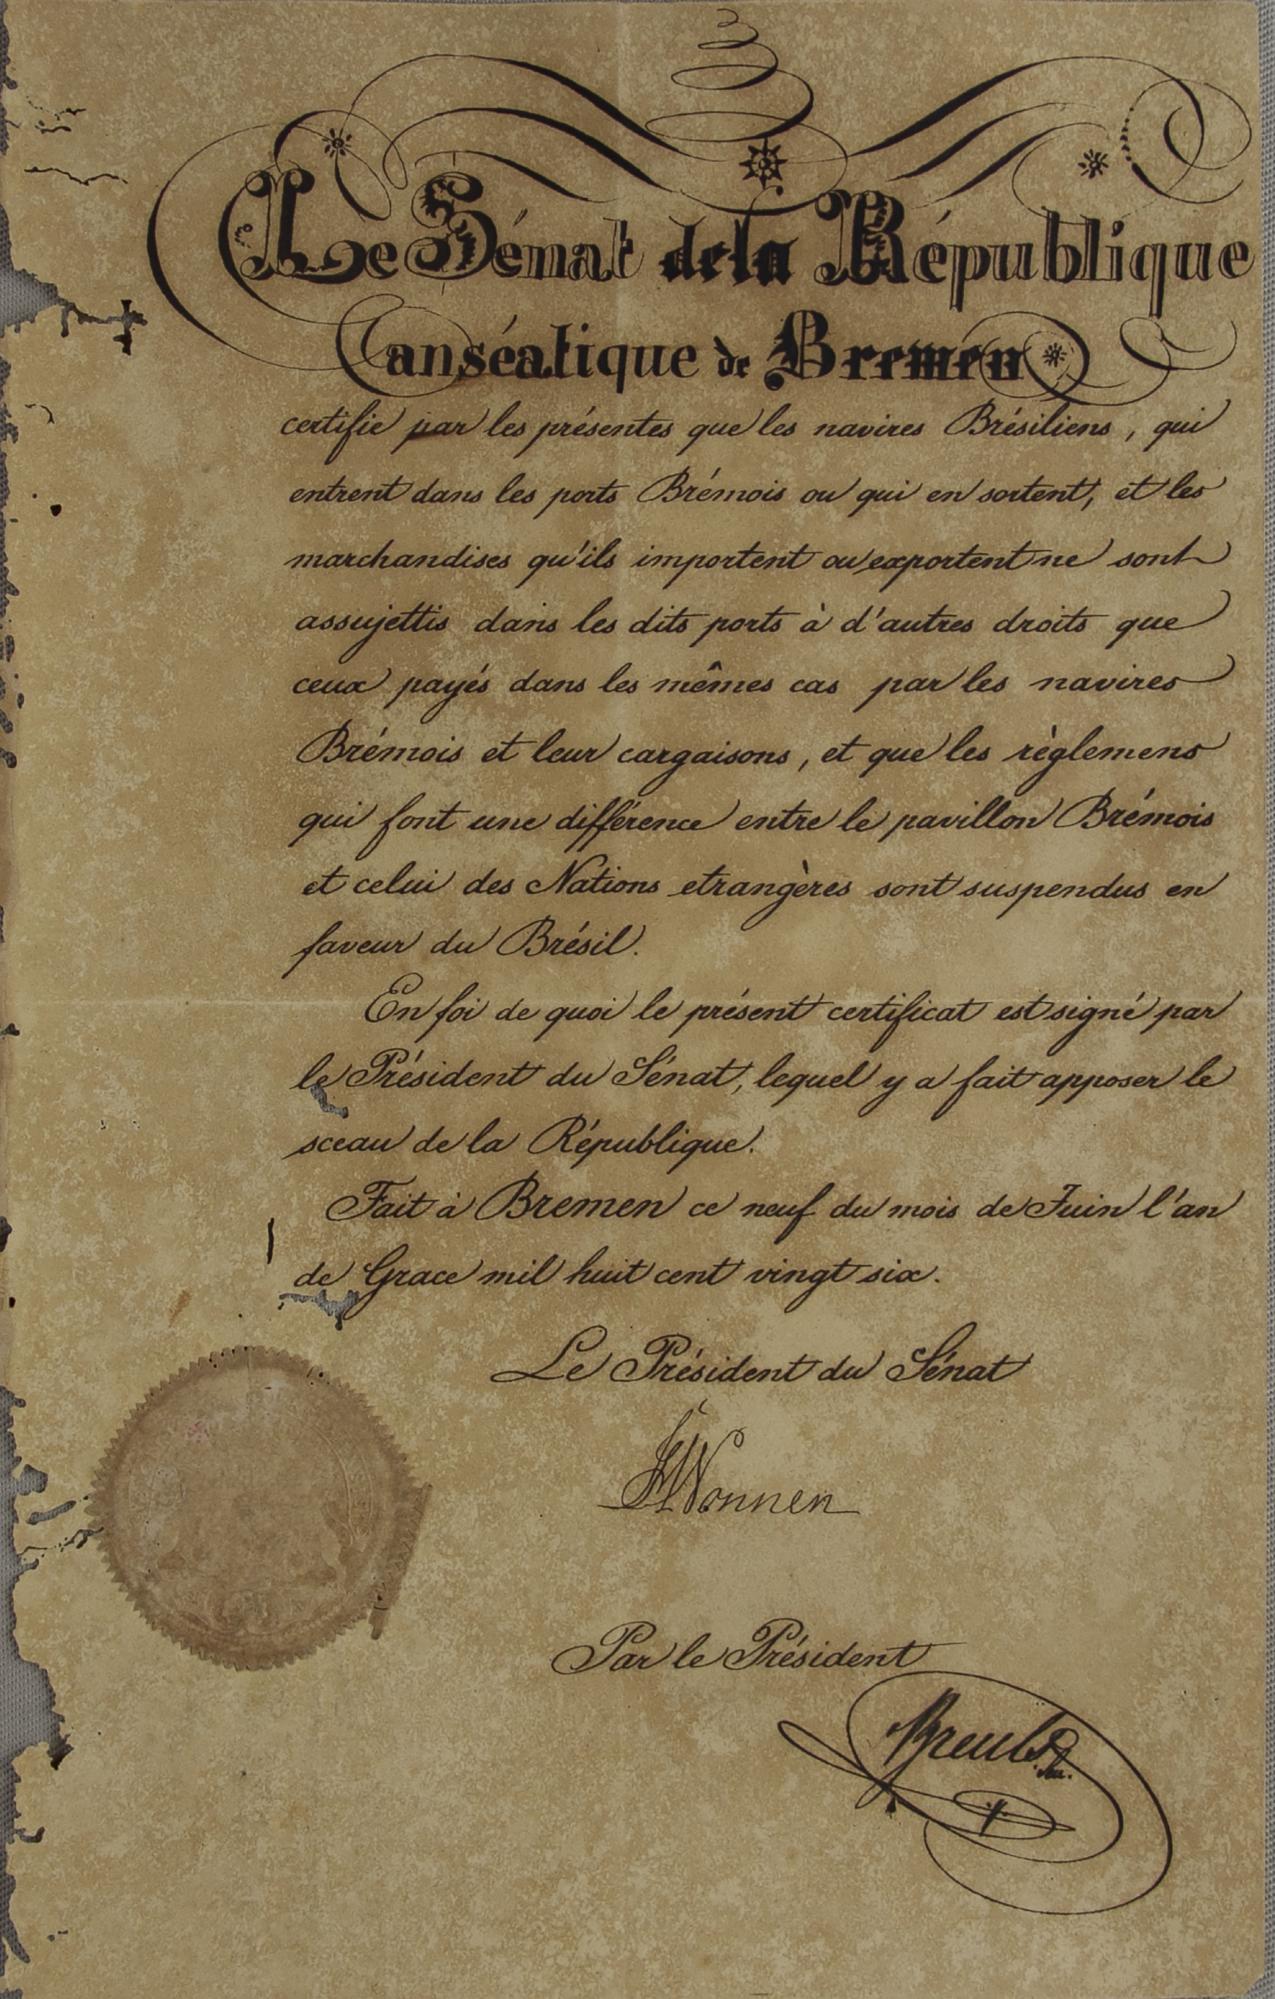 Le Sénat de la République
anséatique de Bremen
certifie par les présentes que les navires Brésiliens, qui
entrent dans les ports Brémois ou qui en sortent, et les
marchandises qu'ils importent ou exportent ne sont
assujettis dans les dits ports à d'autres droits que
ceux payés dans les mêmes cas par les navires
Brémois et leur cargaisons, et que les règlemens
qui font une différence entre le pavillon Brémois
et celui des Nations etrangères sont suspendus en
faveur du Brésil.
En foi de quoi le présent certificat est signé par
le Président du Sénat, lequel y a fait apposer le
sceau de la République.
Fait à Bremen ce neuf du mois de Juin l'an
de Grace mil huit cent vingt six.
Le Président du Sénat
Nonnen
Par le Président